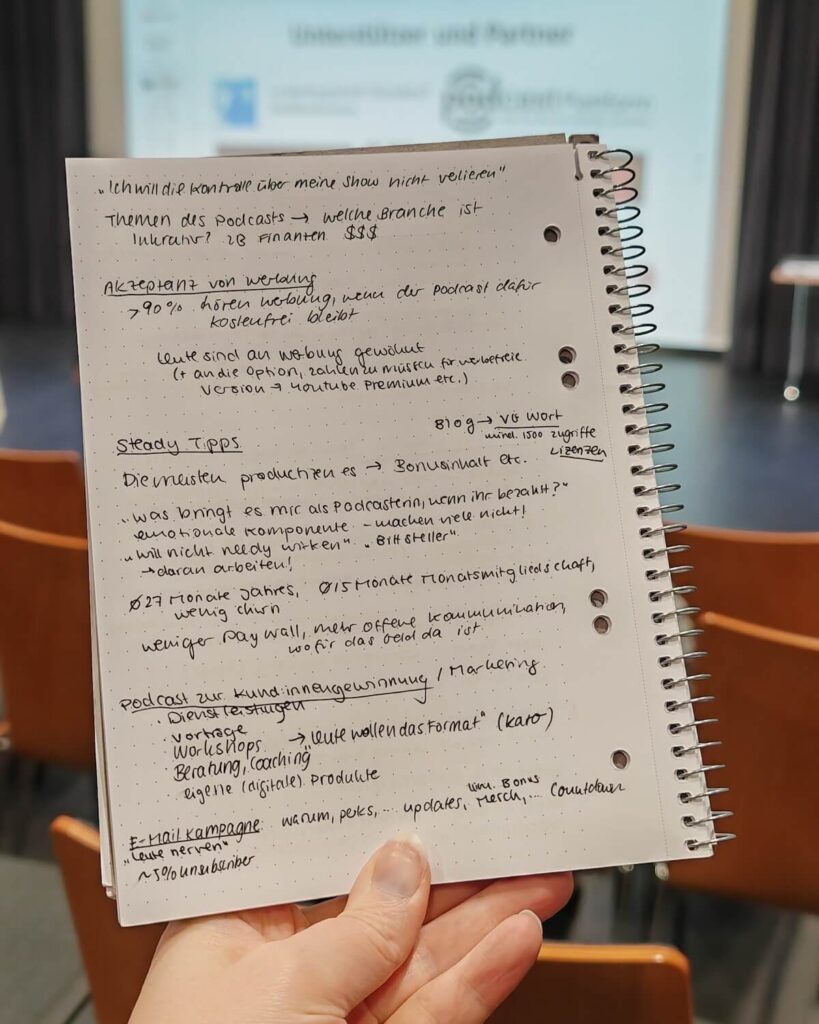 Unterstützer und Partner
podcast
"Ich will die Kontrolle über meine Show nicht verlieren"
Themen des Podcasts → welche Branche ist
lukrativ? zB Finanzen $$$
Akzeptanz von Werbung
>90% hören Werbung, wenn der Podcast dafür
kostenfrei bleibt
Leute sind an Werbung gewöhnt
(+ an die Option, zahlen zu müssen für werbefreie
Version → Youtube Premium etc.)
Blog → VG Wort
mind. 1500 Zugriffe
Lizenzen
Steady Tipps
Die meisten produzieren es → Bonusinhalt etc.
"Was bringt es mir als Podcasterin, wenn ihr bezahlt?"
emotionale Komponente - machen viele nicht!
"will nicht needy wirken" "Bittsteller"
→ daran arbeiten!
Ø27 Monate Jahres, Ø15 Monate Monatsmitgliedschaft,
wenig churn
weniger Paywall, mehr offene Kommunikation,
wofür das Geld da ist
Podcast zur Kund:innengewinnung / Marketing
· Dienstleistungen
· Vorträge
Workshops → "Leute wollen das Format" (Karo)
Beratung, Coaching
eigene (digitale) Produkte
E-Mail Kampagne: warum, perks, ... updates, Merch, ... Countdown
Bonus
"Leute nerven"
~5% Unsubscriber